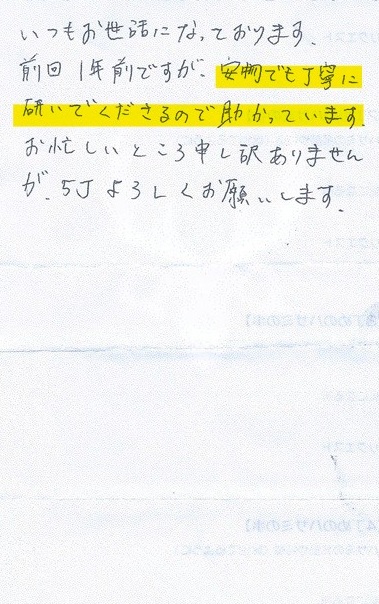 いつもお世話になっております。
前回1年前ですが、安物でも丁寧に
研いでくださるので助かっています。
お忙しいところ申し訳ありません
が、5丁よろしくお願いします。